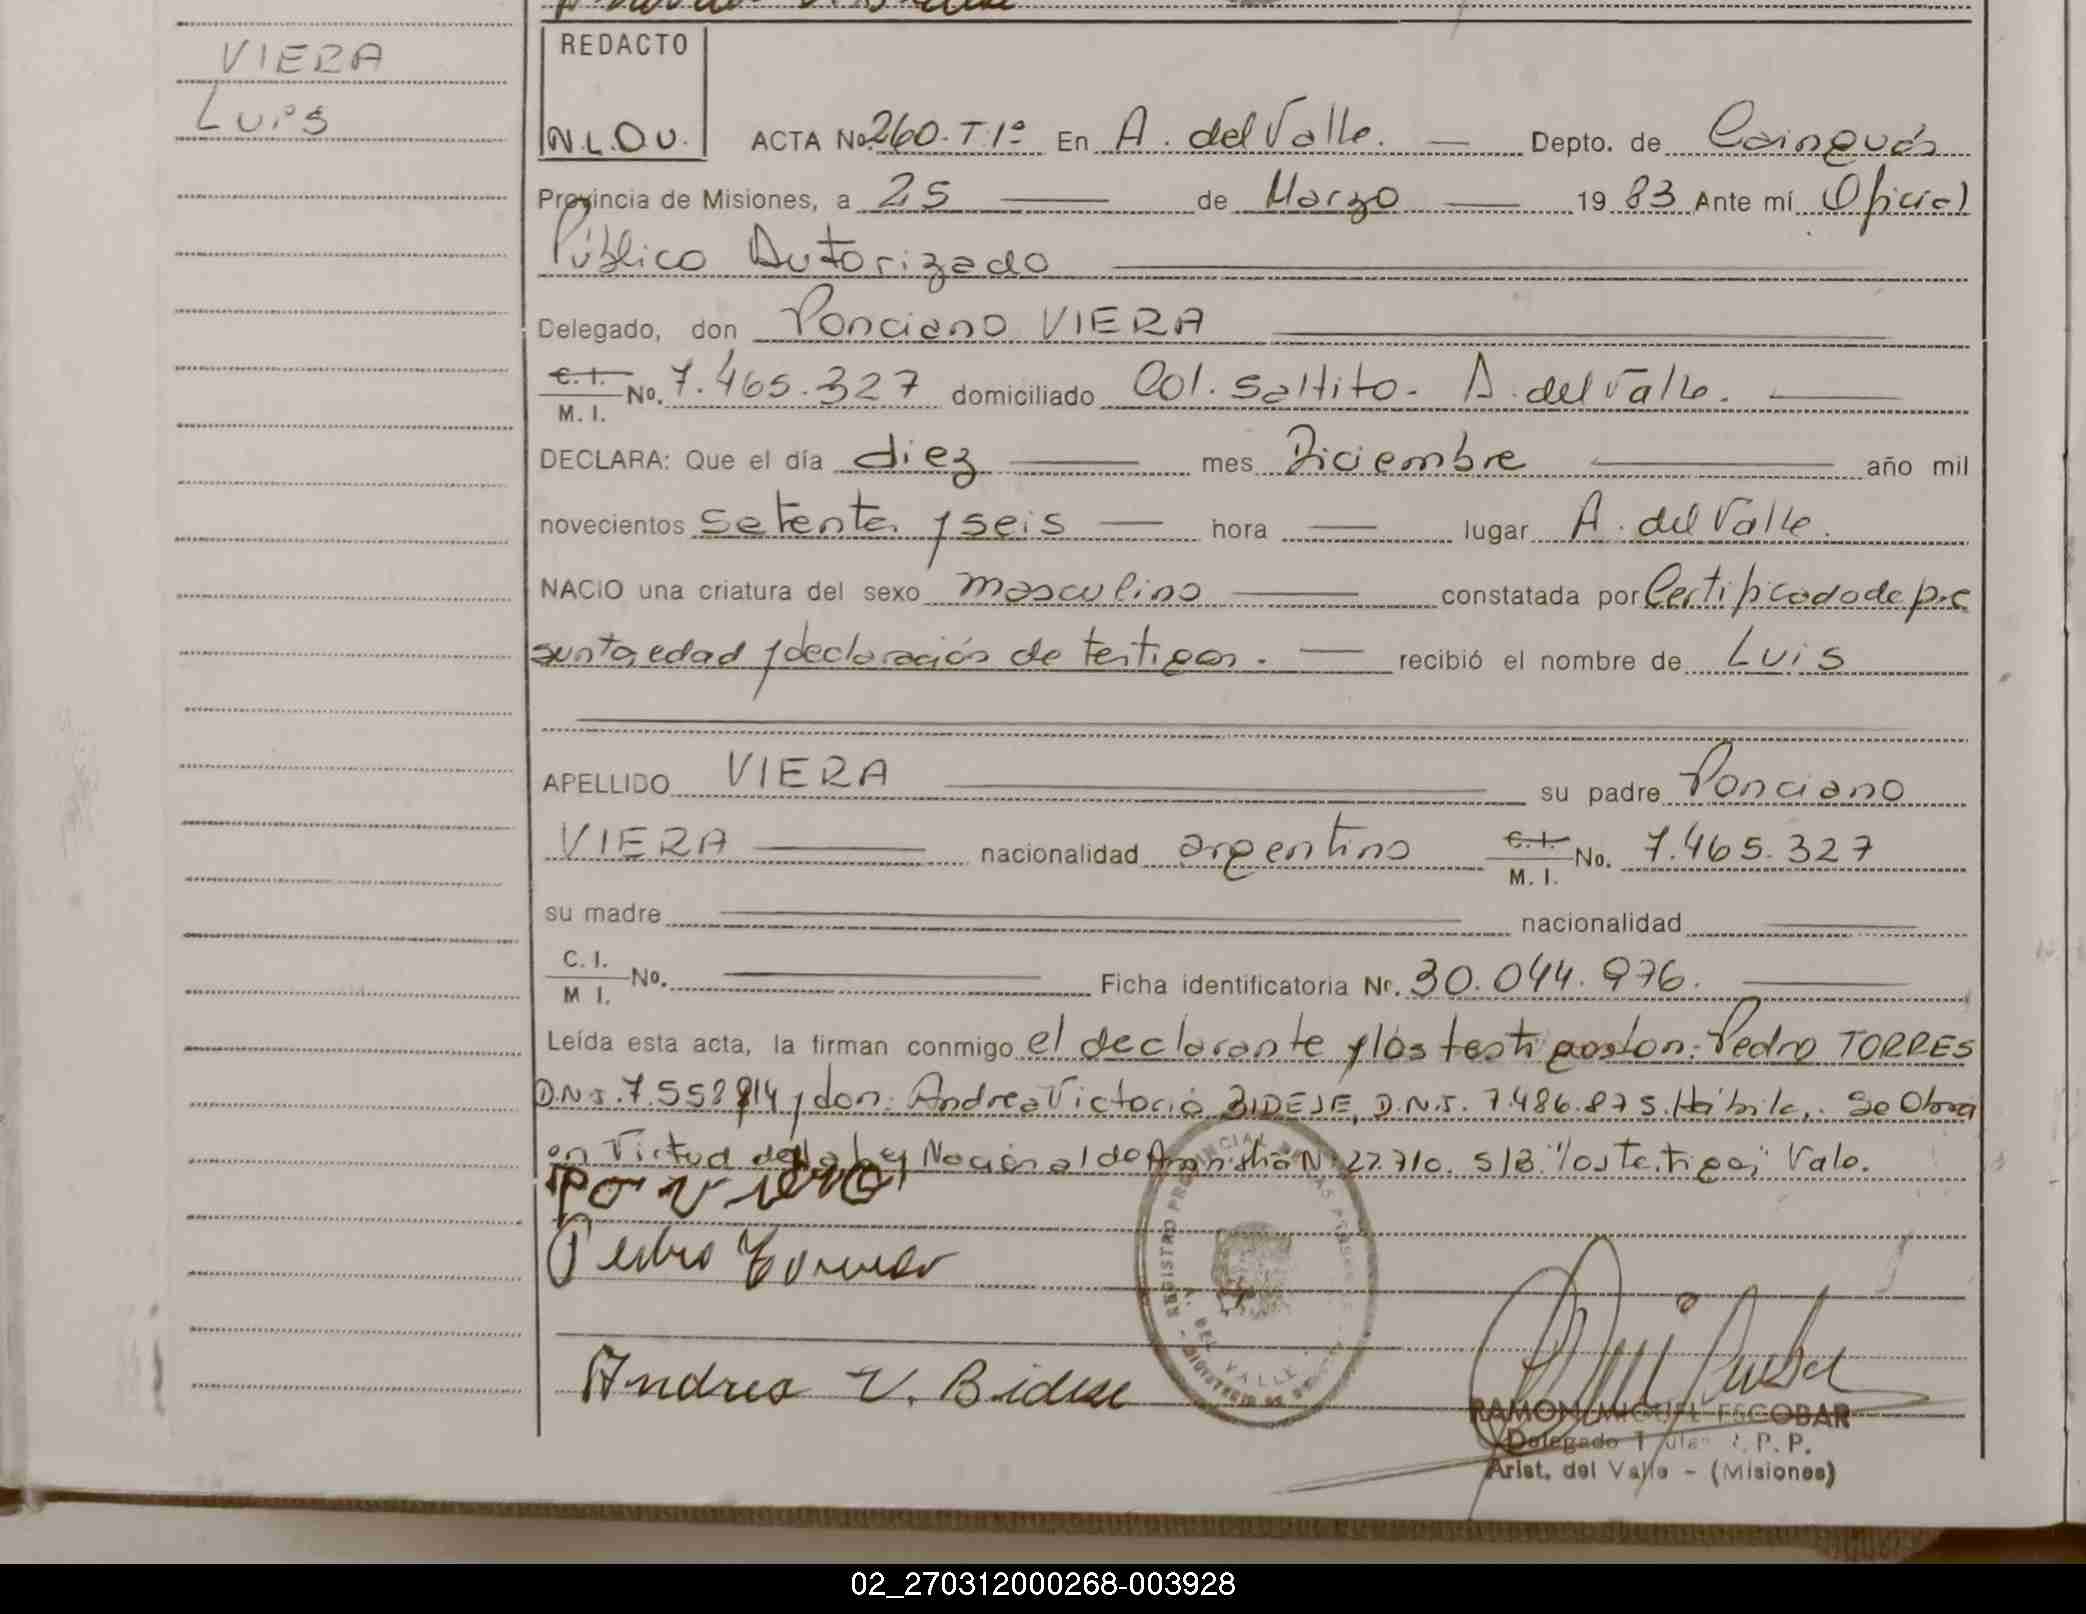 VIERA
Luis
REDACTO
N.L.O.V.
ACTA No 260-T.1º En A. del Valle. Depto. de Cainguás
Provincia de Misiones, a 25 de Marzo 1983 Ante mí Oficial
Público Autorizado
Delegado, don Ponciano VIERA
C.I. M.I. No. 7.465.327 domiciliado Col. Saltito - A. del Valle.
DECLARA: Que el día diez mes Diciembre año mil
novecientos setenta y seis hora lugar A. del Valle.
NACIO una criatura del sexo masculino constatada por Certificado de pre
sunta edad y declaración de testigos. recibió el nombre de Luis
APELLIDO VIERA su padre Ponciano
VIERA nacionalidad argentino C.I. M.I. No. 7.465.327
su madre nacionalidad
C.I. M I. No. Ficha identificatoria Nr. 30.044.976.
Leída esta acta, la firman conmigo el declarante y los testigos don: Pedro TORRES
D.N.I. 7.558 914 y don: Andrea Victorio BIDESE, D.N.I. 7.486.875. Hábile, Se Obra
en Virtud de la Ley Nacional de Amnistía Nº 22.710. S/B: "los testigos" Vale.
Andrea V. Bidese
REGISTRO PROVINCIAL DE LAS PERSONAS
A. DEL VALLE
RAMON MIGUEL ESCOBAR
Delegado Titular R. P. P.
Arist. del Valle - (Misiones)
02_270312000268-003928